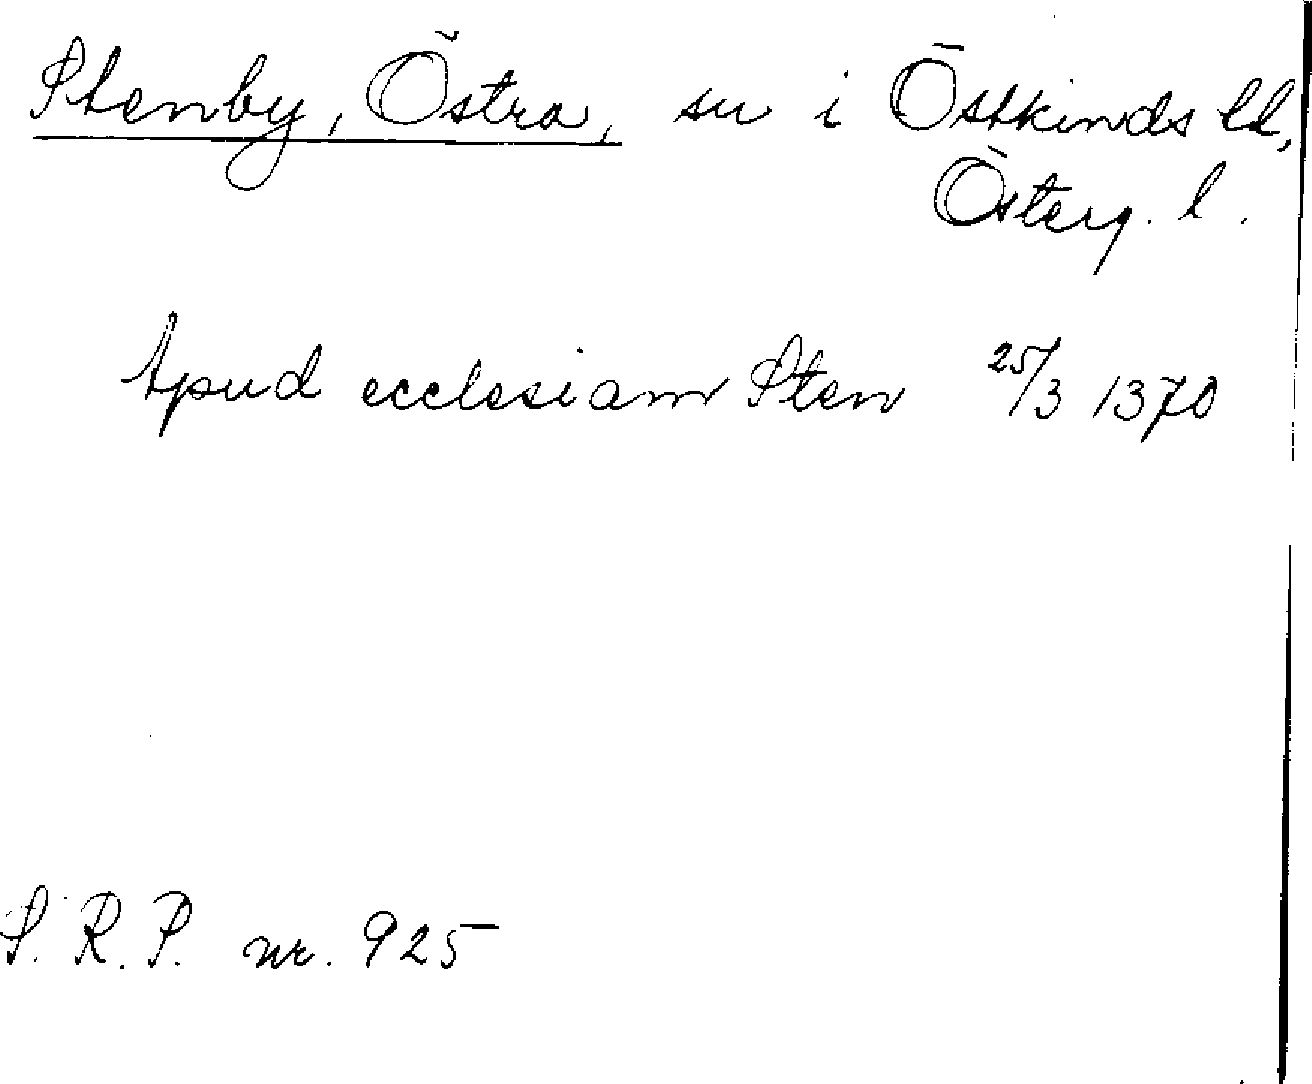 Stenby, Östra, sn i Östkinds hd,
Österg. l.
Apud ecclesiam Sten 25/3 1370
S. R. P. nr. 925